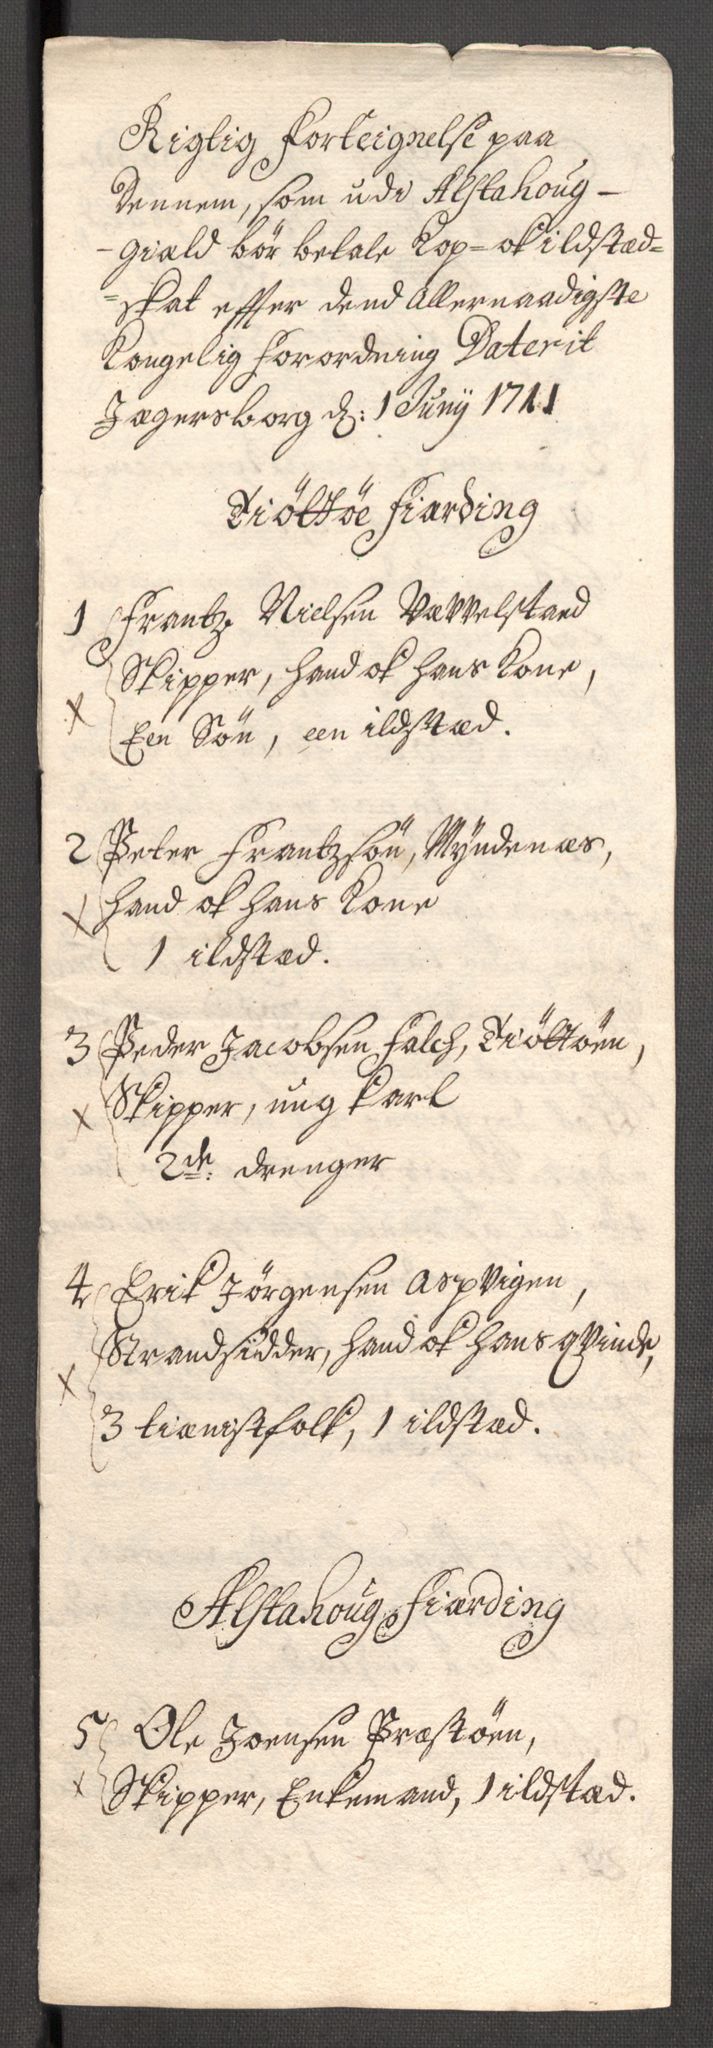 Rigtig Forteignelse paa
dennem, som udi Alstahoug-
-giæld bör betale Kop= ok ildstæd=
=skat effter dend Allernaadigste
Kongelig forordning Daterit
Jægersborg d: 1 Junij 1711
Tiöttöe fiærding
1 Frantz Nielsen Vævvelstæd
Skipper, hand ok hans Kone,
x Een Sön, een ildstæd.
2 Peter Frantzsön, Myndenæs,
x hand ok hans Kone
1 ildstæd.
3 Peder Jacobsen Falch, Tiöttöen,
x Skipper, ung karl
2de: drenger
4 Erik Jörgensen Aspvigen,
Strandsidder, hand ok hans qvinde,
x
3 tiænistfolk, 1 ildstæd.
Alstahoug fiærding
5 Ole Joensen Præstöen,
x Skipper, Enkemand, 1 ildstæd.